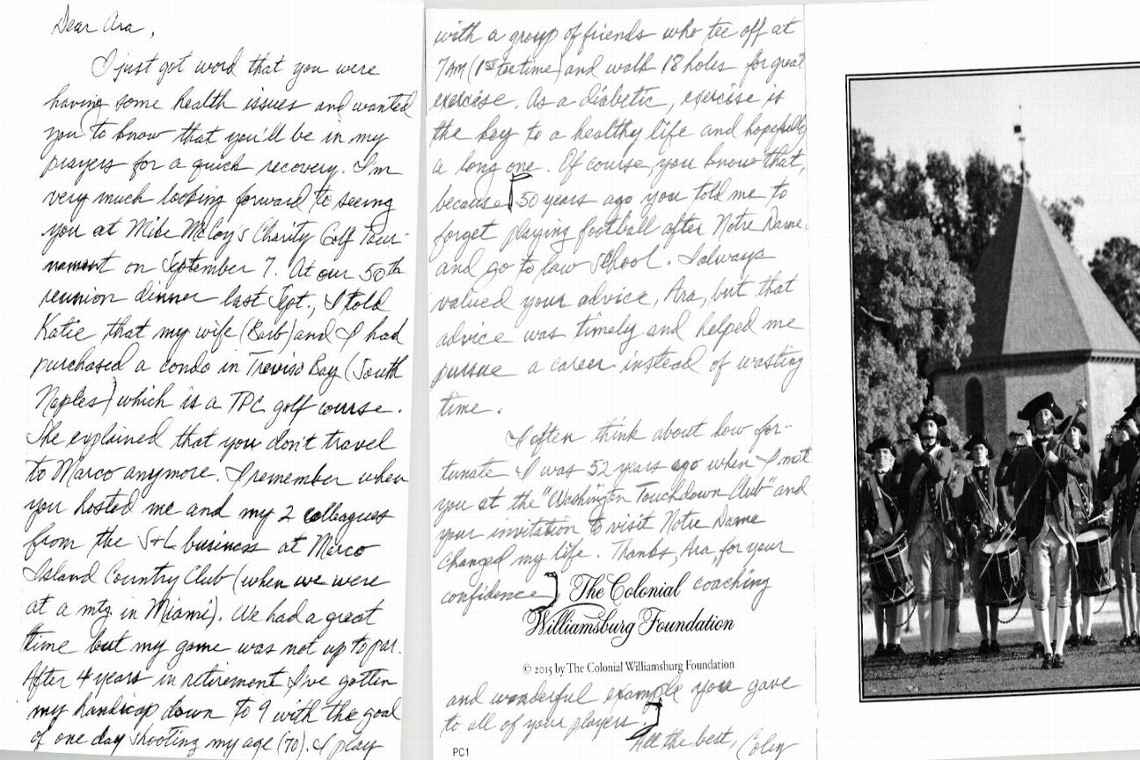 Dear Ara,
I just got word that you were
having some health issues and wanted
you to know that you'll be in my
prayers for a quick recovery. I'm
very much looking forward to seeing
you at Mike McCoy's Charity Golf Tour-
nament on September 7. At our 50th
reunion dinner last Sept., I told
Katie that my wife (Barb) and I had
purchased a condo in Treviso Bay (South
Naples) which is a TPC golf course.
She explained that you don't travel
to Marco anymore. I remember when
you hosted me and my 2 colleagues
from the S+L business at Marco
Island Country Club (when we were
at a mtg. in Miami). We had a great
time but my game was not up to par.
After 4 years in retirement I've gotten
my handicap down to 9 with the goal
of one day shooting my age (70). I play
with a group of friends who tee off at
7AM (1st tee time) and walk 18 holes for great
exercise. As a diabetic, exercise is
the key to a healthy life and hopefully
a long one. Of course, you know that,
because 50 years ago you told me to
forget playing football after Notre Dame
and go to law school. I always
valued your advice, Ara, but that
advice was timely and helped me
pursue a career instead of wasting
time.
I often think about how for-
tunate I was 52 years ago when I met
you at the "Washington Touchdown Club" and
your invitation to visit Notre Dame
changed my life. Thanks, Ara, for your
confidence, coaching
The Colonial
Williamsburg Foundation
© 2015 by The Colonial Williamsburg Foundation
and wonderful example you gave
to all of your players.
All the best, Coley
PC1